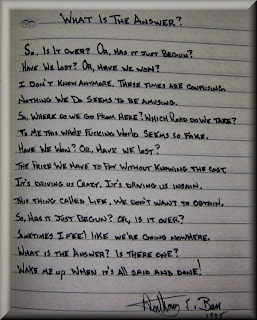 What Is The Answer?
So, Is It Over? Or, Has It Just Begun?
Have We Lost? Or, Have We Won?
I Don't Know Anymore. These Times Are Confusing.
Nothing We Do Seems To Be Amusing.
So, Where Do We Go From Here? Which Road Do We Take?
To Me This Whole Fucking World Seems So Fake.
Have We Won? Or, Have We Lost?
The Price We Have To Pay Without Knowing The Cost.
It's Driving Us Crazy. It's Driving Us Insain.
This Thing Called Life, We Don't Want To Obtain.
So, Has It Just Begun? Or, Is It Over?
Sometimes I Feel Like We're Going Nowhere.
What Is The Answer? Is There One?
Wake Me Up When It's All Said And Done!
Anthony